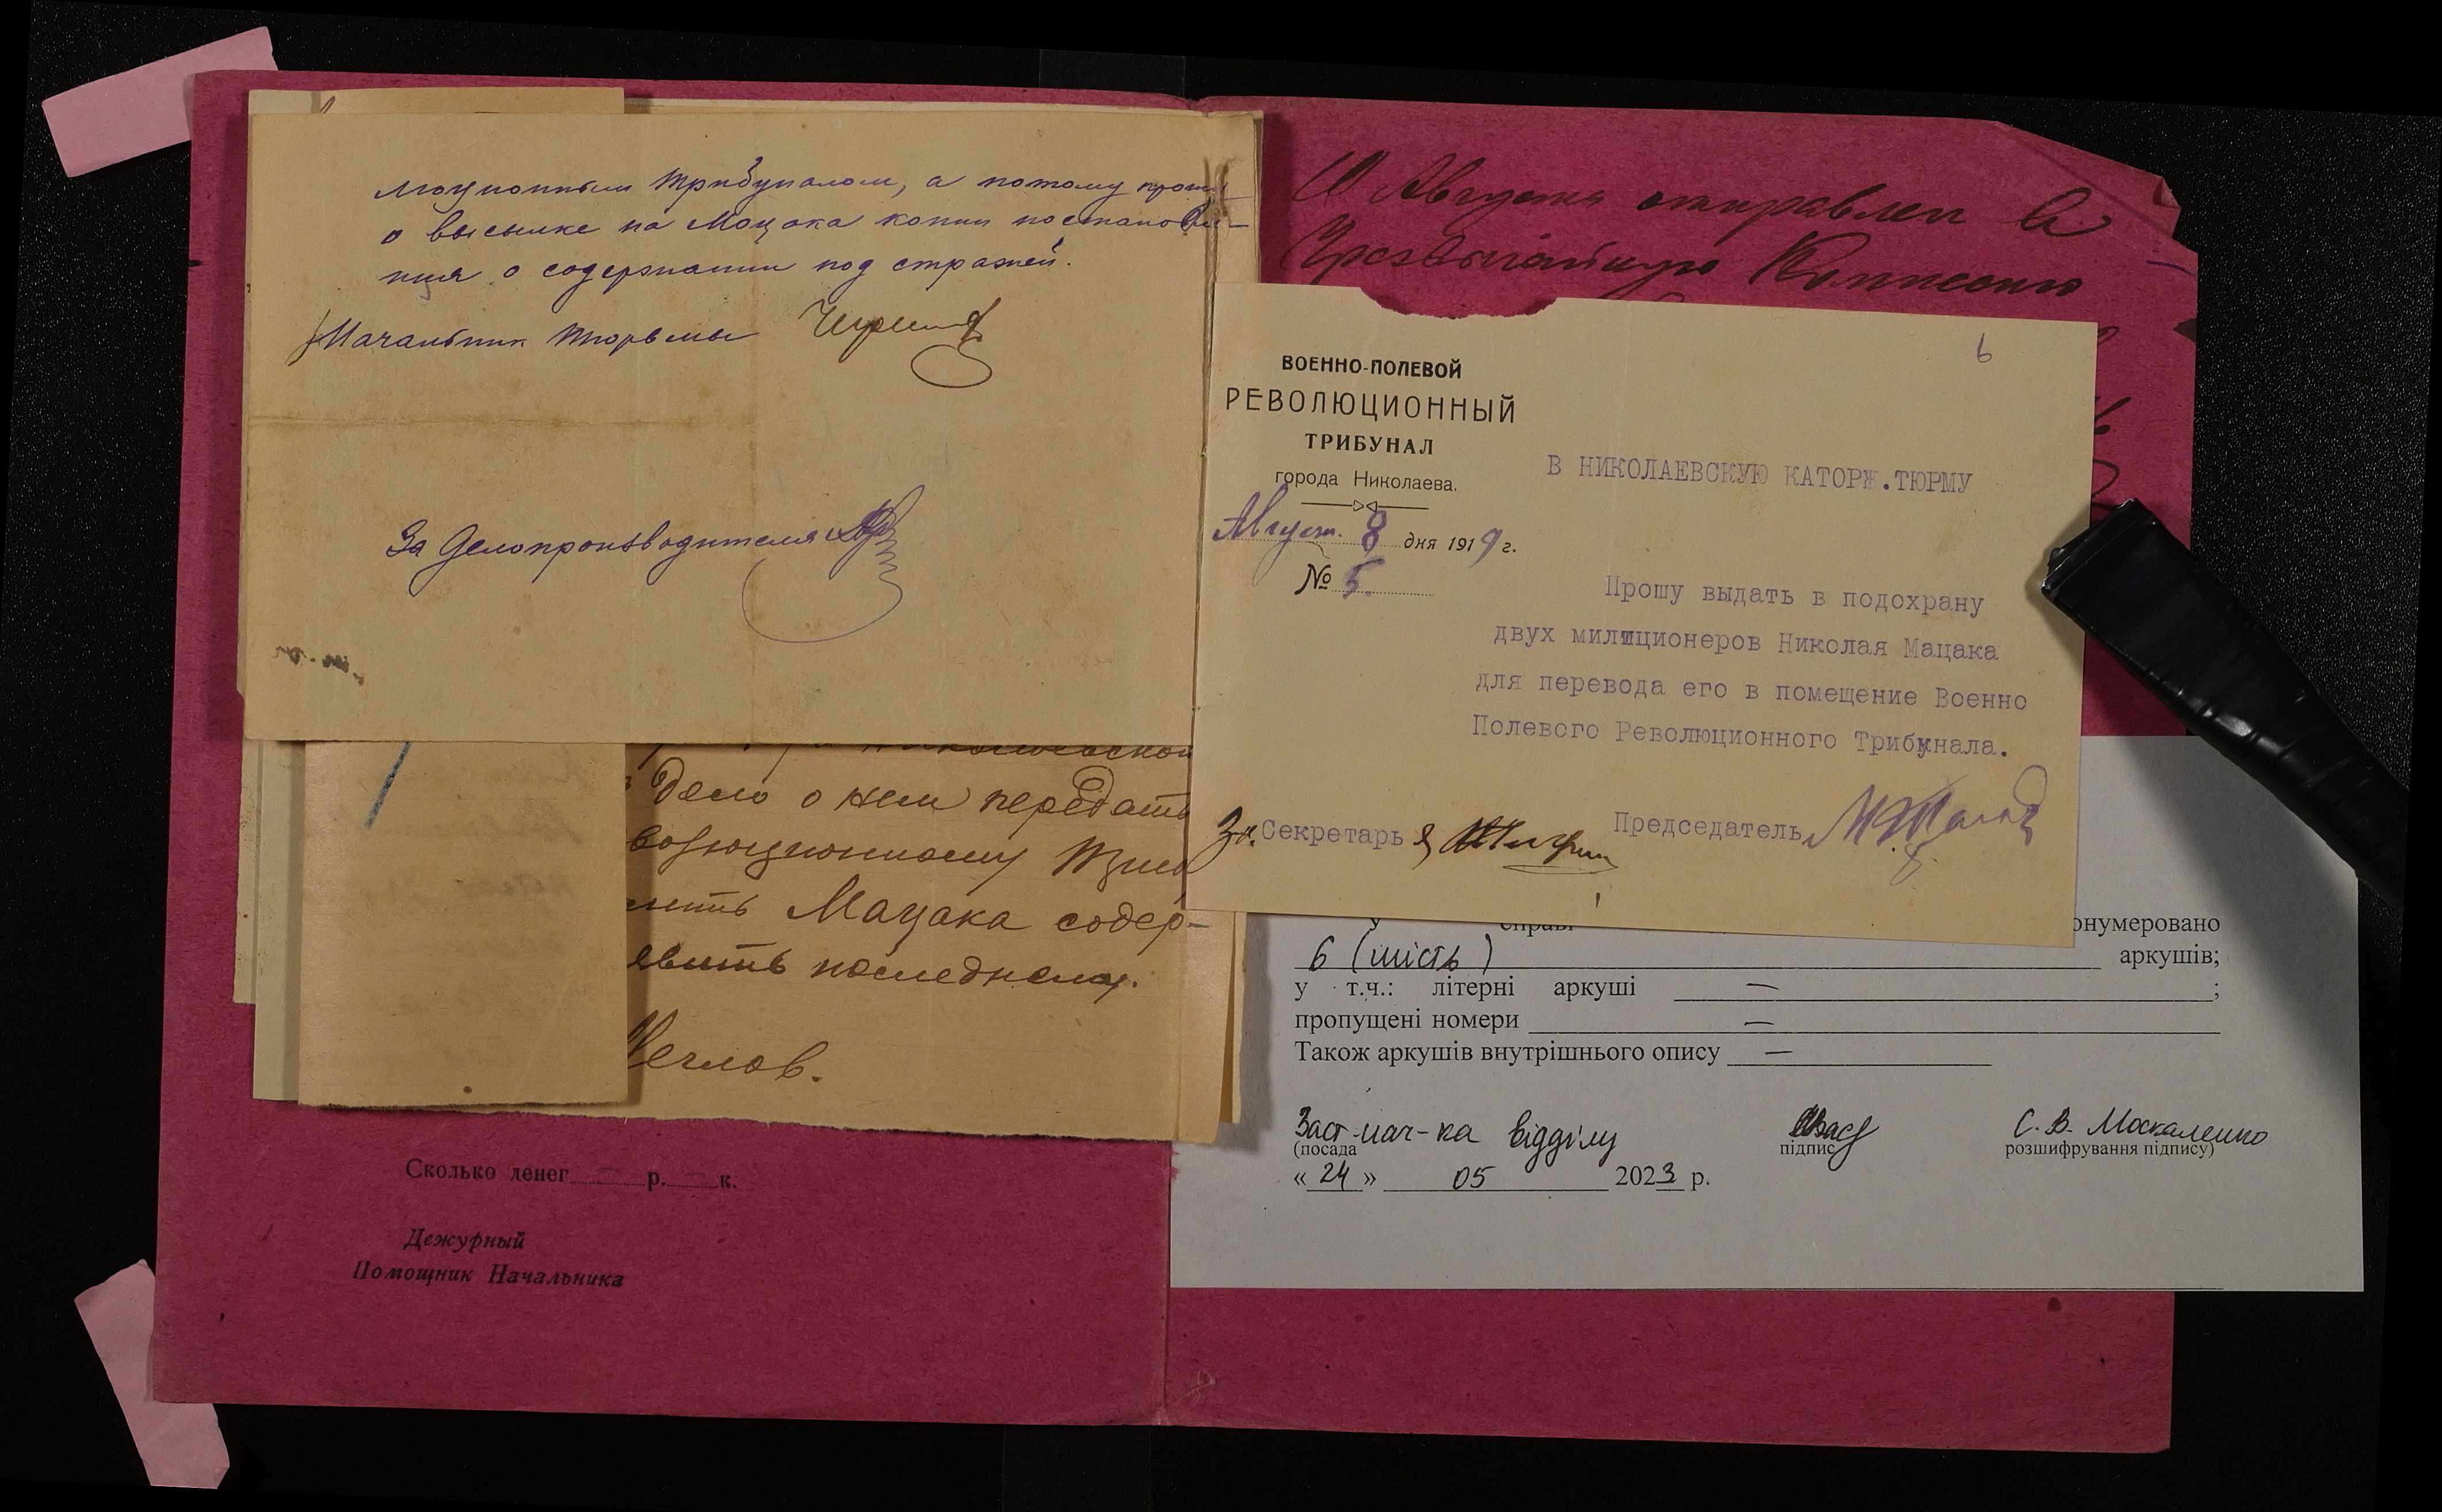 люционным трибуналом, а потому прошу
о высылке на Мацака копии постановле-
ния о содержании под стражей.
Начальник тюрьмы
За Делопроизводителя
Николаевской
Дело о нем передать
волюционному Триб
жить Мацака содер-
явить последнему.
Сколько денег р. к.
Дежурный
Помощник Начальника
10 Августа отправлен в
Чрезвычайную Комиссию
6
ВОЕННО-ПОЛЕВОЙ
РЕВОЛЮЦИОННЫЙ
ТРИБУНАЛ
города Николаева.
Август. 8 дня 1919 г.
№ 5.
В НИКОЛАЕВСКУЮ КАТОРЖ.ТЮРМУ
Прошу выдать в подохрану
двух милиционеров Николая Мацака
для перевода его в помещение Военно
Полевого Революционного Трибунала.
За. Секретарь
Председатель
У справі онумеровано
6 (шість) аркушів;
у т.ч.: літерні аркуші — ;
пропущені номери —
Також аркушів внутрішнього опису —
Заст-нач-ка відділу С. В. Москаленко
(посада підпис розшифрування підпису)
« 24 » 05 2023 р.